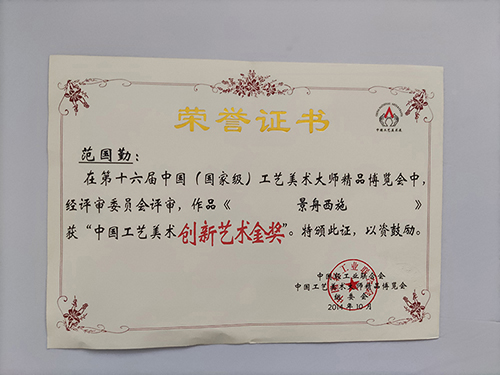 荣誉证书
中国工艺美术展
范国勤：
在第十六届中国（国家级）工艺美术大师精品博览会中，
经评审委员会评审，作品《 景舟西施 》
获“中国工艺美术创新艺术金奖”。特颁此证，以资鼓励。
中国轻工业联合会
中国工艺美术大师精品博览会
组委会
2014年10月